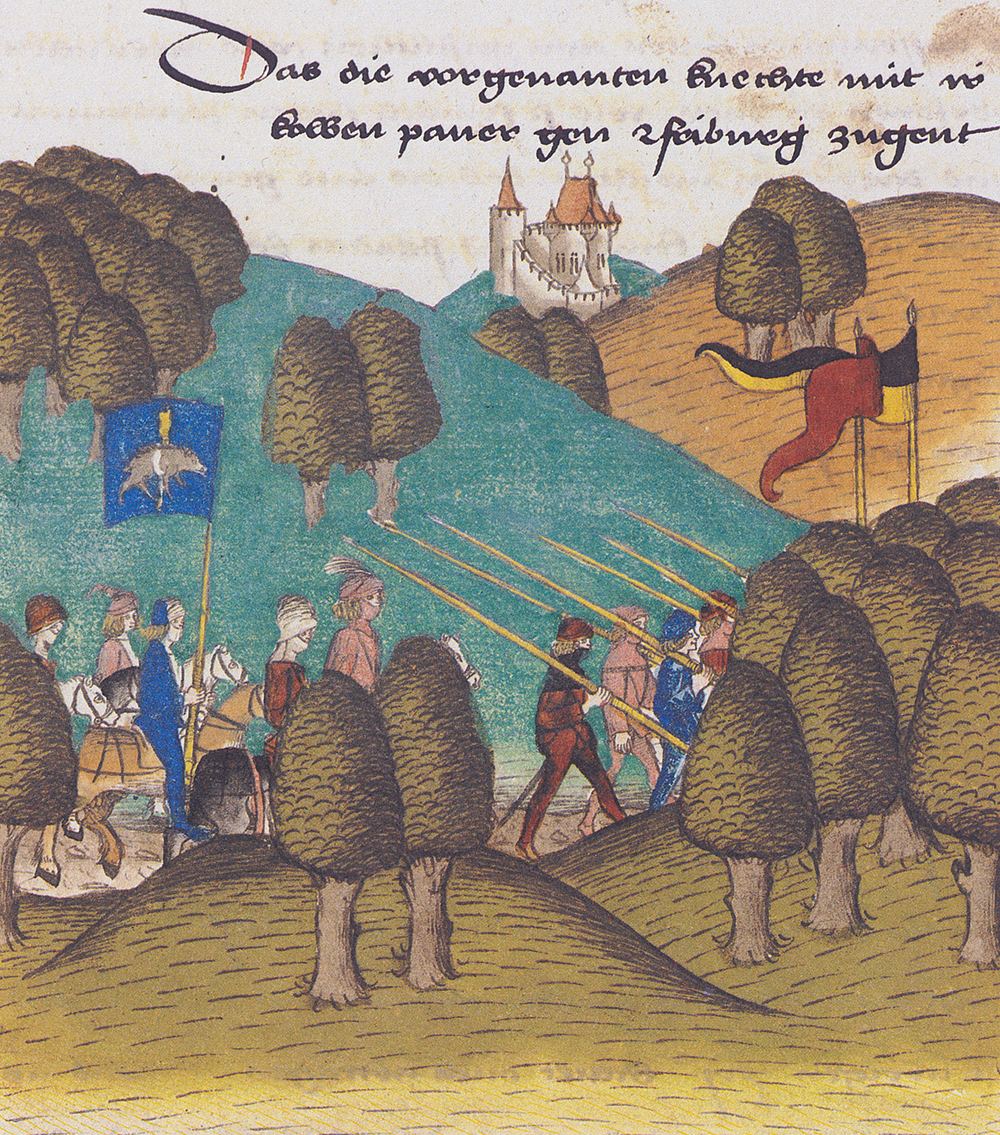 Das die vorgenanten knechte mit ir
kolben paner gen Friburg zugent